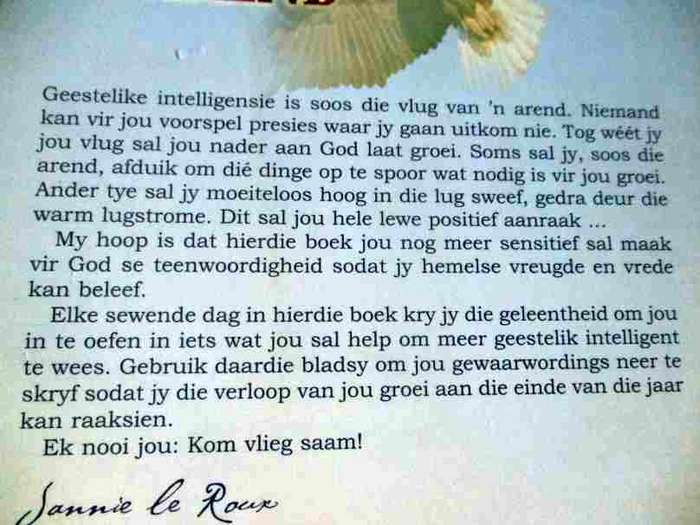 Geestelike intelligensie is soos die vlug van 'n arend. Niemand
kan vir jou voorspel presies waar jy gaan uitkom nie. Tog wéét jy
jou vlug sal jou nader aan God laat groei. Soms sal jy, soos die
arend, afduik om dié dinge op te spoor wat nodig is vir jou groei.
Ander tye sal jy moeiteloos hoog in die lug sweef, gedra deur die
warm lugstrome. Dit sal jou hele lewe positief aanraak ...
My hoop is dat hierdie boek jou nog meer sensitief sal maak
vir God se teenwoordigheid sodat jy hemelse vreugde en vrede
kan beleef.
Elke sewende dag in hierdie boek kry jy die geleentheid om jou
in te oefen in iets wat jou sal help om meer geestelik intelligent
te wees. Gebruik daardie bladsy om jou gewaarwordings neer te
skryf sodat jy die verloop van jou groei aan die einde van die jaar
kan raaksien.
Ek nooi jou: Kom vlieg saam!
Jannie le Roux